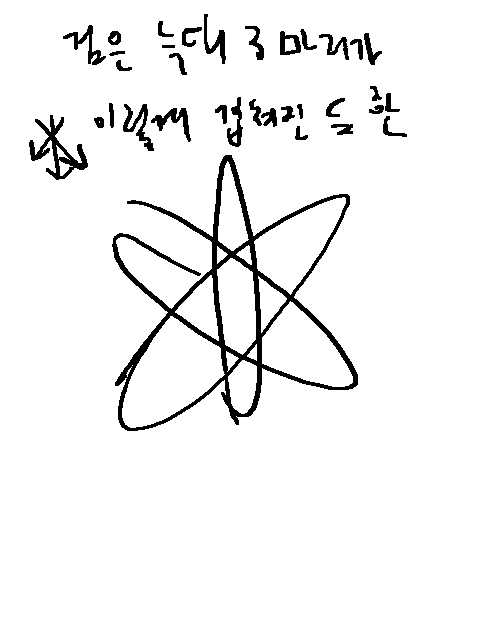 검은 늑대 3마리가
이렇게 겹쳐진 듯한